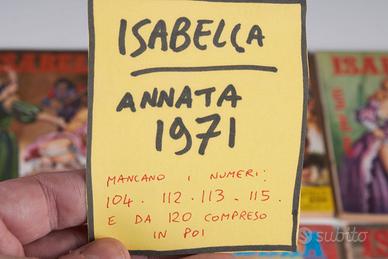 ISABELLA
ANNATA
1971
MANCANO I NUMERI:
104. 112. 113. 115.
E DA 120 COMPRESO
IN POI
subito